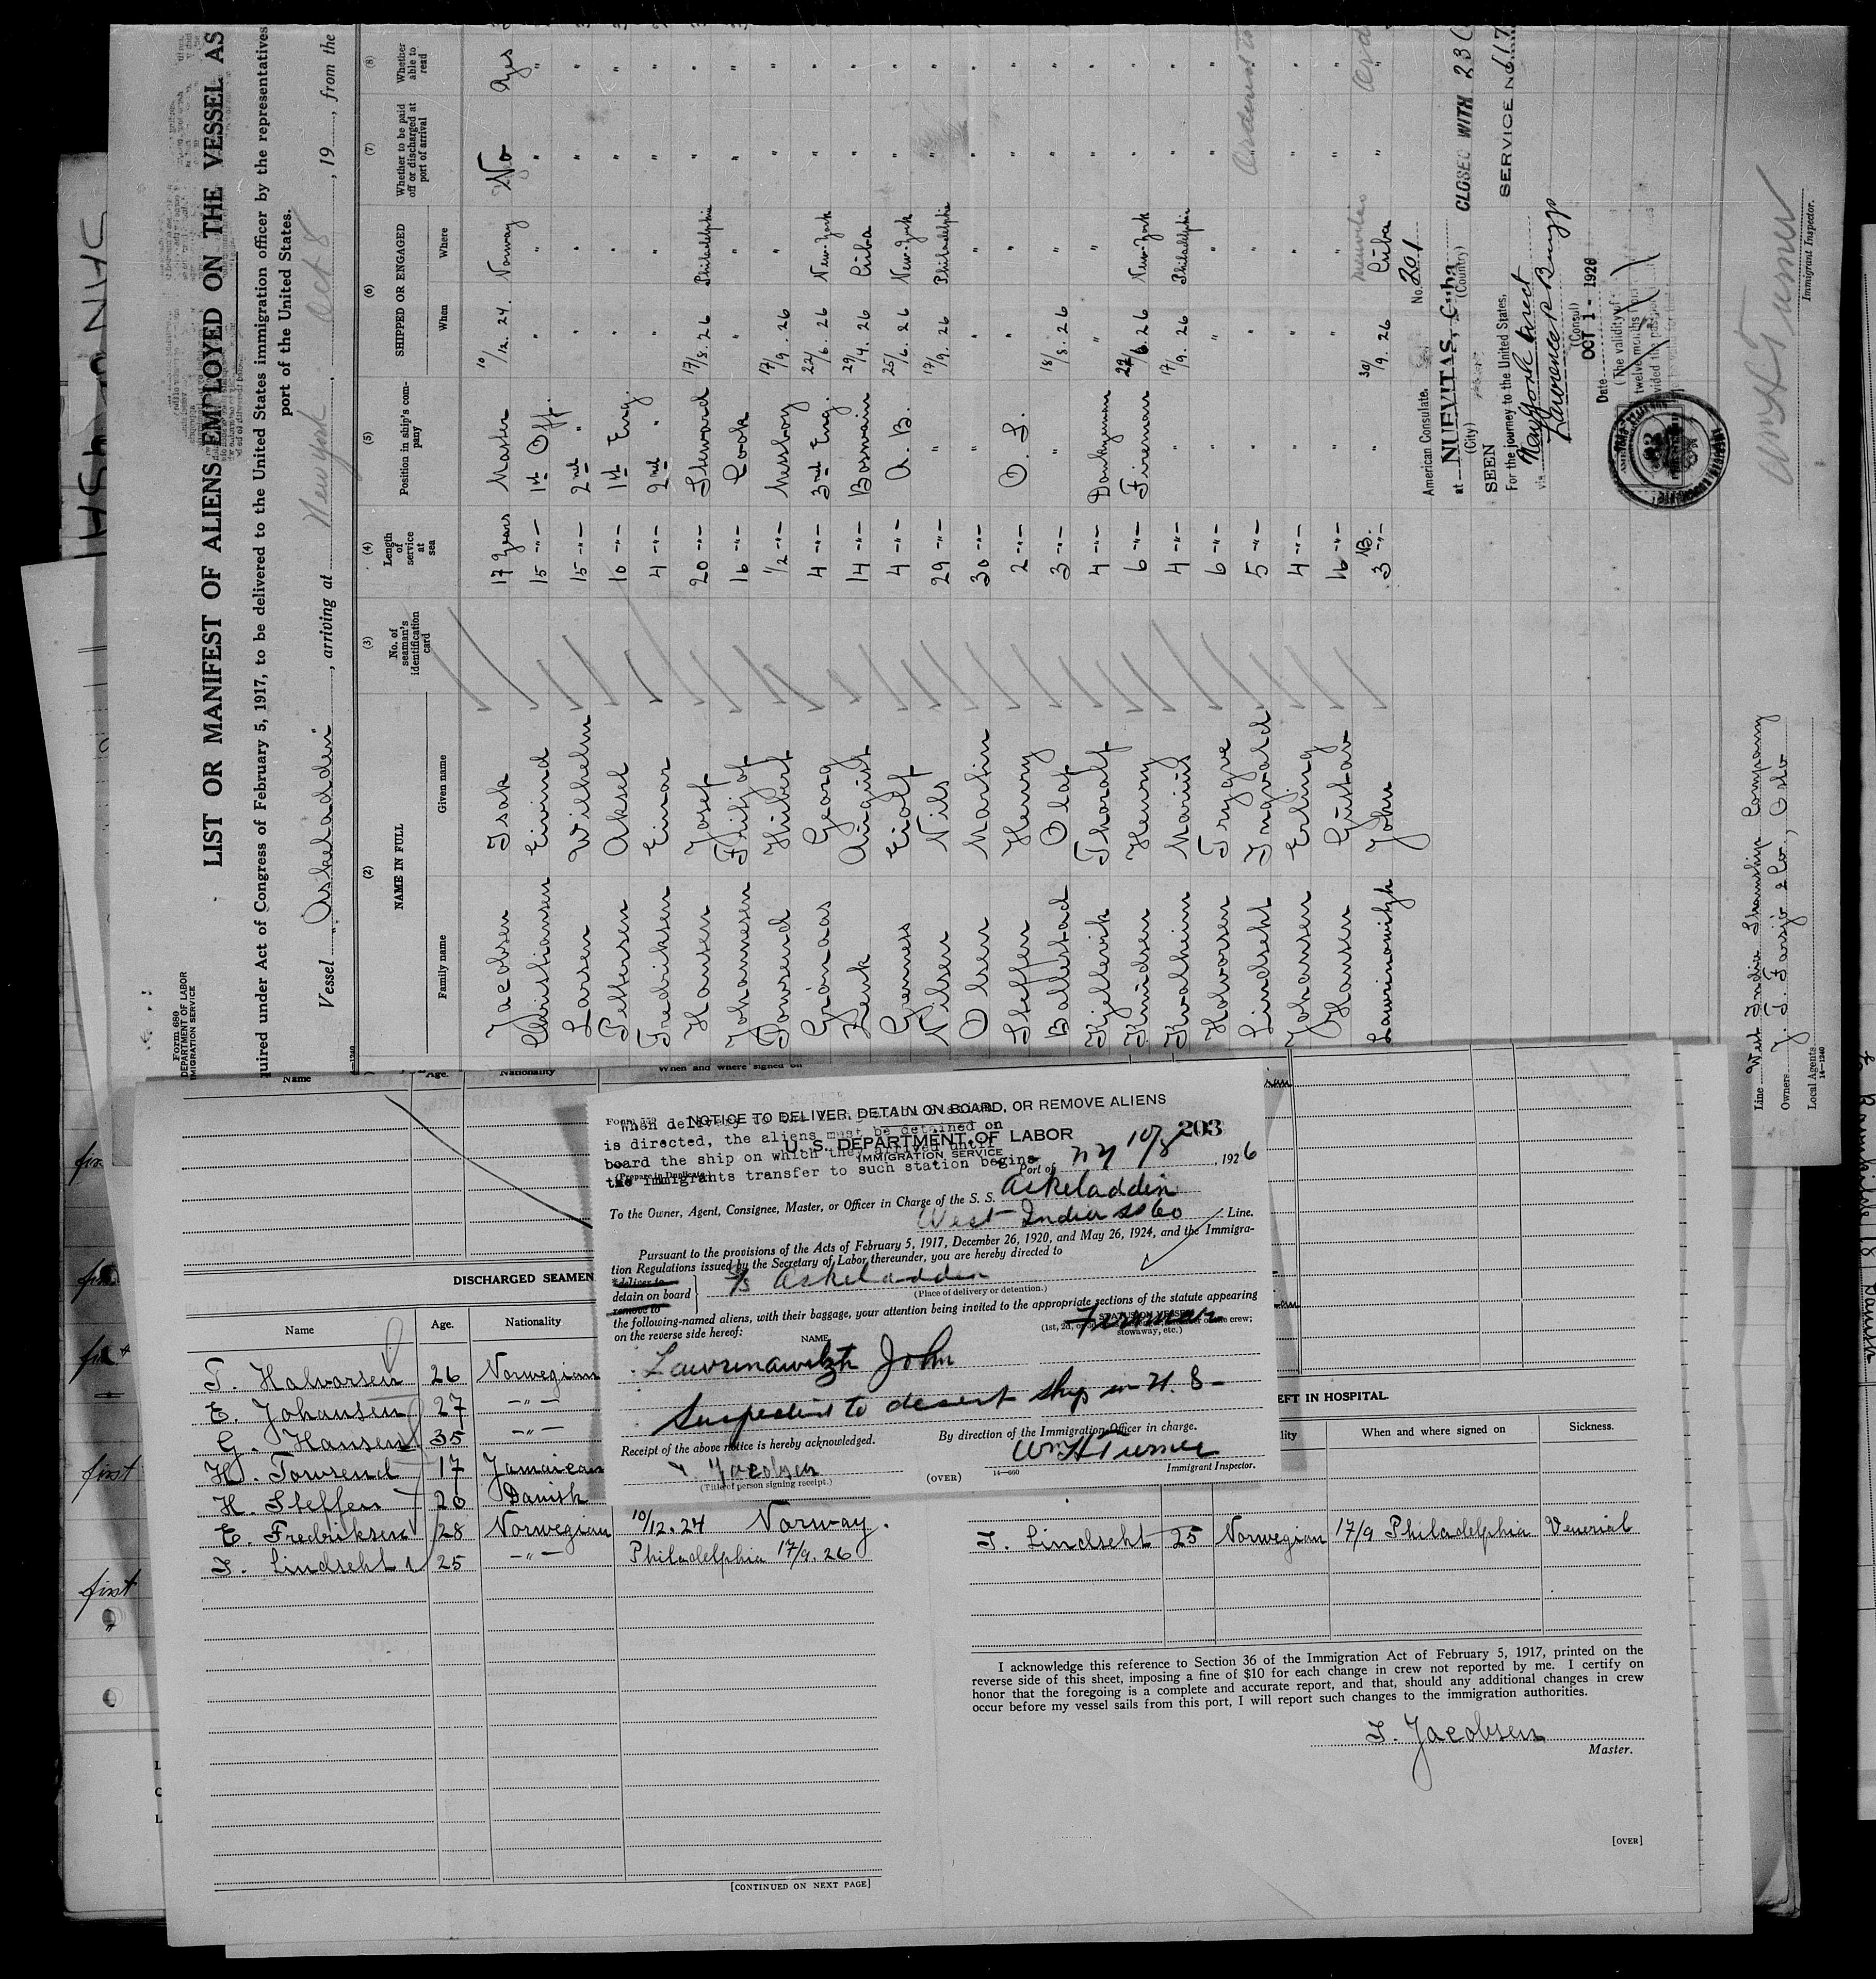 Form 680
DEPARTMENT OF LABOR
IMMIGRATION SERVICE
LIST OR MANIFEST OF ALIENS EMPLOYED ON THE VESSEL AS
quired under Act of Congress of February 5, 1917, to be delivered to the United States immigration officer by the representatives
port of the United States.
Vessel "Askeladden", arriving at Newyork Oct 8, 19, from the
(2) (3) (4) (5) (6) (7) (8)
NAME IN FULL
Family name Given name
No. of seaman's identification card
Length of service at sea
Position in ship's company
SHIPPED OR ENGAGED
When Where
Whether to be paid off or discharged at port of arrival
Whether able to read
Jacobsen Isak 17 years Master 10/12. 24. Norway No yes
Christiansen Eivind 15 -"- 1st Off. " " " "
Larsen Wilhelm 15 -"- 2nd " " " " "
Pettersen Aksel 10 -"- 1st Eng. " " " "
Fredriksen Einar 4 -"- 2nd " " " " "
Hansen Josef 20 -"- Steward 17/8. 26 Philadelphia " "
Johannesen Fritjof 10 -"- Cook " " " "
Towsend Hubert 1/2 -"- Messboy 17/9. 26 " " "
Grönaas Georg 4 -"- 3rd Eng. 22/6. 26 New-York " "
Lenk August 14 -"- Boswain 29/4. 26 Cuba " "
Grennes Eiolf 4 -"- A. B. 25/6. 26 New-York " "
Nilsen Nils 29 -"- " 17/9. 26 Philadelphia " "
Olsen Martin 30 -"- " " " " "
Steffen Henry 2 -"- O. S. " " " "
Ballestad Olaf 3 -"- " 18/8. 26 " " "
Kjellevik Thoralf 4 -"- Donkeyman " " " "
Knudsen Henry 6 -"- Fireman 22/6. 26 New-York " "
Kvalheim Marius 4 -"- " 17/9. 26 Philadelphia " "
Halvorsen Trygve 6 -"- " " " " "
Lindseht Ingvard 5 -"- " " " "
Johansen Erling 4 -"- " " " " "
Hansen Gustav 16 -"- " " " " "
Lawrinowitzh John 3 -"- " 30/9. 26 Cuba " "
American Consulate. No. 201
at NUEVITAS, Cuba
(City) (Country)
SEEN
For the journey to the United States,
via New York direct
Lawrence
(Consul)
Date OCT 1 - 1926
(The validity of
twelve months
CLOSED WITH 23
SERVICE No. 617
Wm H Turner
Immigrant Inspector.
Line West India Steamship Company
Owners
Oslo
Local Agents
14—1240
Name Age. Nationality When and where signed on
NOTICE TO DELIVER, DETAIN ON BOARD, OR REMOVE ALIENS
When delivery
is directed, the aliens must be detained on
board the ship on which they arrived until
the immigrants transfer to such station begins
U. S. DEPARTMENT OF LABOR
IMMIGRATION SERVICE
203
(Prepare in Duplicate)
Port of NY 10/8, 1926
To the Owner, Agent, Consignee, Master, or Officer in Charge of the S. S. Askeladden
West India SS Co Line.
Pursuant to the provisions of the Acts of February 5, 1917, December 26, 1920, and May 26, 1924, and the Immigra-
tion Regulations issued by the Secretary of Labor thereunder, you are hereby directed to
deliver to
detain on board
remove to
S/S Askeladden
(Place of delivery or detention.)
the following-named aliens, with their baggage, your attention being invited to the appropriate sections of the statute appearing
on the reverse side hereof:
NAME
Fireman
stowaway, etc.)
Lawrenawitzh John
Suspected to desert ship in U. S-
Receipt of the above notice is hereby acknowledged.
By direction of the Immigration Officer in charge.
Jacobsen
Wm H Turner
(Title of person signing receipt.)
(OVER)
14—660
Immigrant Inspector.
DISCHARGED SEAMEN
Name Age. Nationality
T. Halvorsen 26 Norwegian
E. Johansen 27 -"-
G. Hansen 35 -"-
H. Towsend 17 Jamaican
H. Steffen 20 Danish
E. Fredriksen 28 Norwegian 10/12. 24 Norway.
I. Lindseht 25 -"- Philadelphia 17/9. 26
[CONTINUED ON NEXT PAGE]
EFT IN HOSPITAL.
lity When and where signed on Sickness.
I. Lindseht 25 Norwegian 17/9 Philadelphia Venerial
I acknowledge this reference to Section 36 of the Immigration Act of February 5, 1917, printed on the
reverse side of this sheet, imposing a fine of $10 for each change in crew not reported by me. I certify on
honor that the foregoing is a complete and accurate report, and that, should any additional changes in crew
occur before my vessel sails from this port, I will report such changes to the immigration authorities.
I. Jacobsen
Master.
[OVER]
first
first